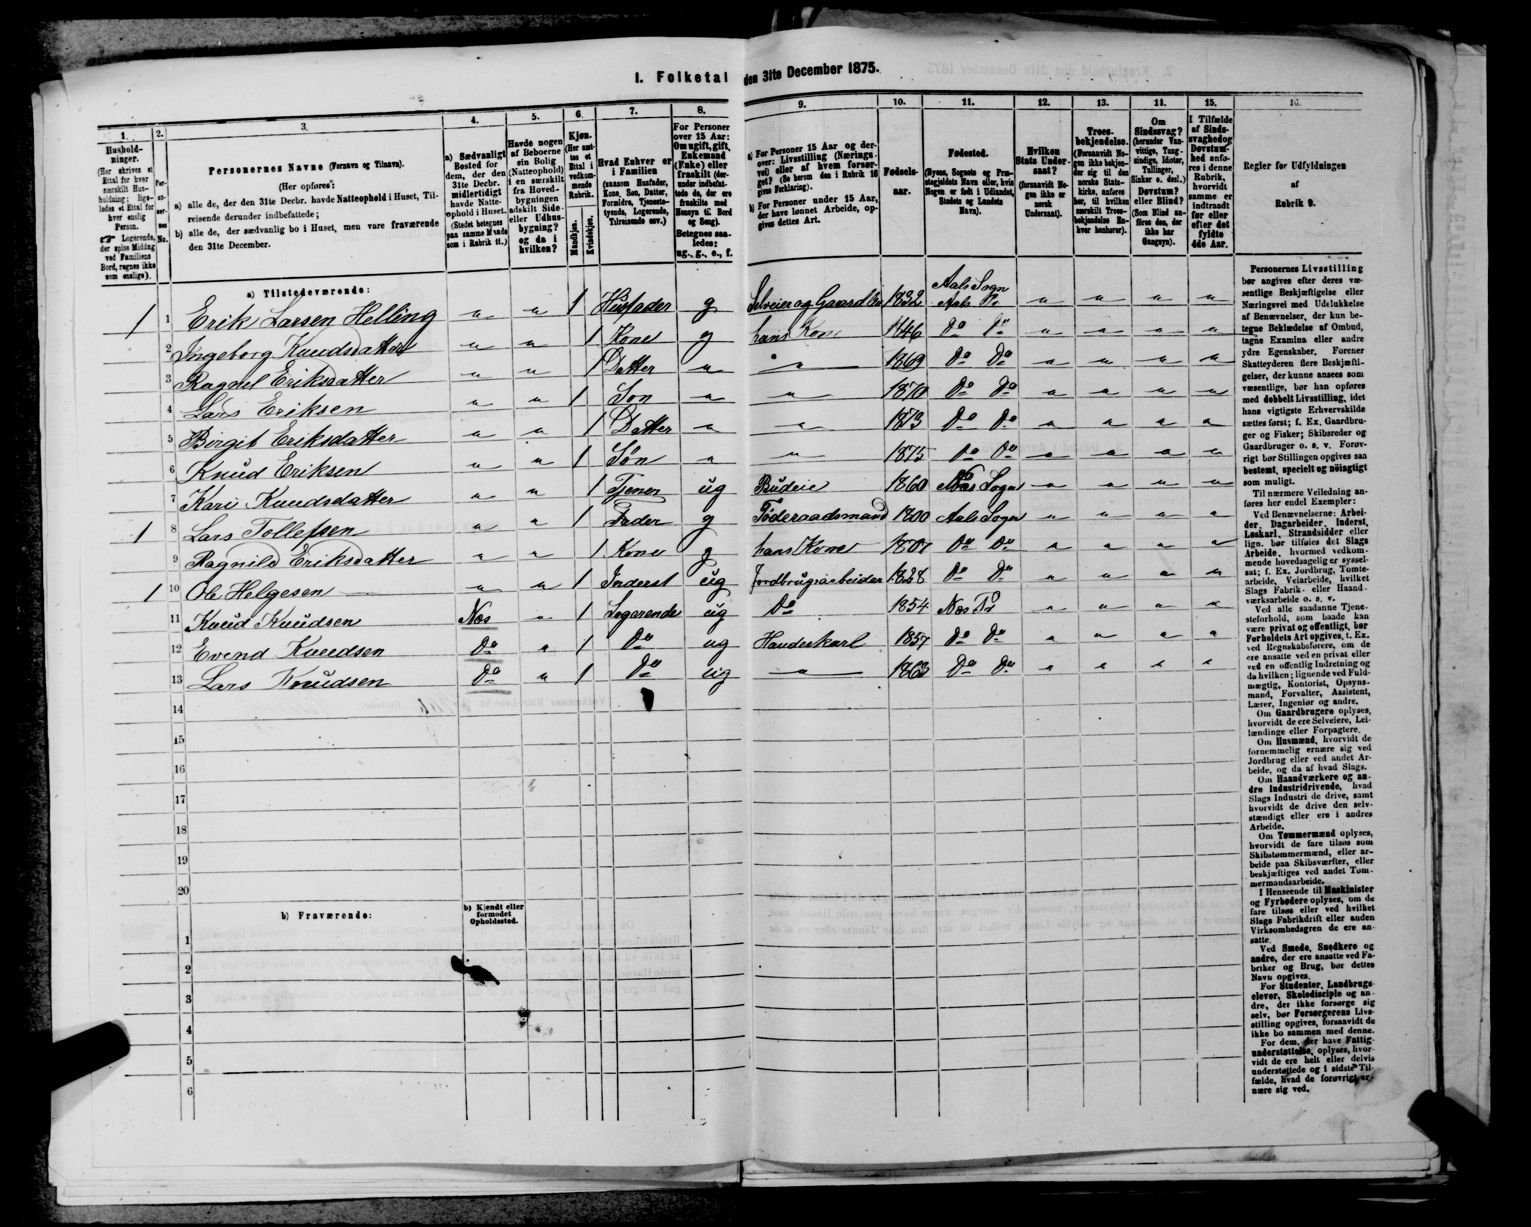 1. Folketal den 31te December 1875.
1. 2. 3. 4. 5. 6. 7. 8. 9. 10. 11. 12. 13. 14. 15. 16.
Husholdninger.
(Her skrives et Ettal for hver særskilt Husholdning; ligeledes et Ettal for hver enslig Person.
☞ Logerende, der spise Middag ved Familiens Bord, regnes ikke som enslige).
Personernes No.
Personernes Navne (Fornavn og Tilnavn).
(Her opføres:
a) alle de, der den 31te Decbr. havde Natteophold i Huset, Tilreisende derunder indbefattede;
b) alle de, der sædvanlig bo i Huset, men vare fraværende den 31te December.
a) Sædvanligt Bosted for dem, der den 31te Decbr. midlertidigt havde Natteophold i Huset.
(Stedet betegnes paa samme Maade som i Rubrik 11.)
Havde nogen af Beboerne sin Bolig (Natteophold) i en særskilt fra Hovedbygningen adskilt Side- eller Udhusbygning? og da i hvilken?
Kjøn.
(Her sættes et Ettal i vedkommende Rubrik.
Mandkjøn.
Kvindekjøn.
Hvad Enhver er i Familien
(saasom Husfader, Kone, Søn, Datter, Forældre, Tjenestetyende, Logerende, Tilreisende osv.)
For Personer over 15 Aar: Om ugift, gift, Enkemand (Enke) eller fraskilt (derunder indbefattede de, der ere fraskilte med Hensyn til Bord og Seng).
Betegnes saaledes: ug., g., e., f.
a) For Personer 15 Aar og derover: Livsstilling (Næringsvei) eller af hvem forsørget? (Se herom den i Rubrik 16 givne Forklaring).
b) For Personer under 15 Aar, der have lønnet Arbeide, opgives dettes Art.
Fødselsaar.
Fødested.
(Byens, Sognets og Præstegjeldets Navn eller, hvis Nogen er født i Udlandet, Stedets og Landets Navn).
Hvilken Stats Undersaat?
(forsaavidt Nogen ikke er norsk Undersaat).
Troesbekjendelse.
(Forsaavidt Nogen ikke bekjender sig til den norske Statskirke, anføres her, til hvilken særskilt Troesbekjendelse Enhver henhører).
Om Sindssvag?
(herunder Vanvittige, Tungsindige, Idioter, Tullinger, Sinker o. desl.)
Døvstum? eller Blind?
(Som Blind anføres den, der ikke har Gangsyn).
I Tilfælde af Sindssvaghed og Døvstumhed anføres i denne Rubrik, hvorvidt samme er indtraadt før eller efter det fyldte 4de Aar.
Regler for Udfyldningen af Rubrik 9.
a) Tilstedeværende:
1 1 Erik Larsen Helling " " 1 Husfader g Selveier og Gaardbr 1832 Aals Sogn Aals P. " " " "
2 Ingeborg Knudsdatter " " 1 Kone g hans Kone 1846 Do Do " " " "
3 Ragnel Eriksdatter " " 1 Datter " " 1869 Do Do " " " "
4 Lars Eriksen " " 1 Søn " " 1870 Do Do " " " "
5 Birgit Eriksdatter " " 1 Datter " " 1873 Do Do " " " "
6 Knud Eriksen " " 1 Søn " " 1875 Do Do " " " "
7 Kari Knudsdatter " " 1 Tjener ug Budeie 1860 Næs Sogn " " " "
1 8 Lars Tollefsen " " 1 Fader g Føderaadsmand 1800 Aals Sogn " " " "
9 Ragnild Eriksdatter " " 1 Kone g hans Kone 1807 Do Do " " " "
1 10 Ole Helgesen " " 1 Inderst ug Jordbrugsarbeider 1838 Do Do " " " "
11 Knud Knudsen Næs " 1 Logerende ug Do 1854 Næs P. " " " "
12 Evend Knudsen Do " 1 Do ug Handerkarl 1857 Do Do " " " "
13 Lars Knudsen Do " 1 Do ug " 1863 Do Do " " " "
14
15
16
17
18
19
20
b) Fraværende:
b) Kjendt eller formodet Opholdssted.
1
2
3
4
5
6
Personernes Livsstilling
bør angives efter deres væsentlige Beskjæftigelse eller
Næringsvei med Udelukkelse
af Benævnelser, der kun betegne Beklædelse af Ombud,
tagne Examina eller andre
ydre Egenskaber. Forener
Skatteyderen flere Beskjæftigelser, der kunne ansees som
væsentlige, bør han opføres
med dobbelt Livsstilling, idet
hans vigtigste Erhvervskilde
sættes først; f. Ex. Gaardbruger og Fisker; Skibsreder og
Gaardbruger o. s. v. Forøvrigt bør Stillingen opgives saa
bestemt, specielt og nöiagtigt
som muligt.
Til nærmere Veiledning anføres her endel Exempler:
Ved Benævnelserne: Arbeider, Dagarbeider, Inderst,
Løskarl, Strandsidder eller
lign. bør tilføies det Slags
Arbeide, hvormed vedkommende hovedsagelig er sysselsat; f. Ex. Jordbrug, Tømtearbeide, Veiarbeide, hvilket
Slags Fabrik- eller Haandværksarbeide o. s. v.
Ved alle saadanne Tjenesteforhold, som baade kan
være privat og offentligt, bør
Forholdets Art opgives, f. Ex.
ved Regnskabsførere, om de
ere ansatte ved en privat eller
ved en offentlig Indretning og
da hvilken; lignende ved Fuldmægtig, Kontorist, Opsynsmand, Forvalter, Assistent,
Lærer, Ingeniør og andre.
Om Gaardbrugere oplyses,
hvorvidt de ere Selveiere, Leilændinge eller Forpagtere.
Om Husmænd, hvorvidt de
fornemmelig ernære sig ved
Jordbrug eller ved andet Arbeide, og da af hvad Slags.
Om Haandværkere og andre Industridrivende, hvad
Slags Industri de drive, samt
hvorvidt de drive den selvstændigt eller ere i andres
Arbeide.
Om Tømmermænd oplyses,
hvorvidt de fare tilsøs som
Skibstømmermænd, eller arbeide paa Skibsværfter, eller
beskjæftiges ved andet Tømmermandsarbeide.
I Henseende til Maskinister
og Fyrbødere oplyses, om de
fare tilsøs eller ved hvilket
Slags Fabrikdrift eller anden
Virksomhedsgren de ere ansatte.
Ved Smede, Snedkere og
andre, der ere ansatte ved Fabriker og Brug, bør dettes
Navn opgives.
For Studenter, Landbrugselever, Skoledisciple og andre, der ikke forsørge sig
selv, bør Forsørgerens Livsstilling opgives, forsaavidt de
ikke bo sammen med denne.
For dem, der have Fattigunderstøttelse, oplyses, hvorvidt de ere helt eller delvis
understøttede og i sidste Tilfælde, hvad de forøvrigt ernære sig ved.